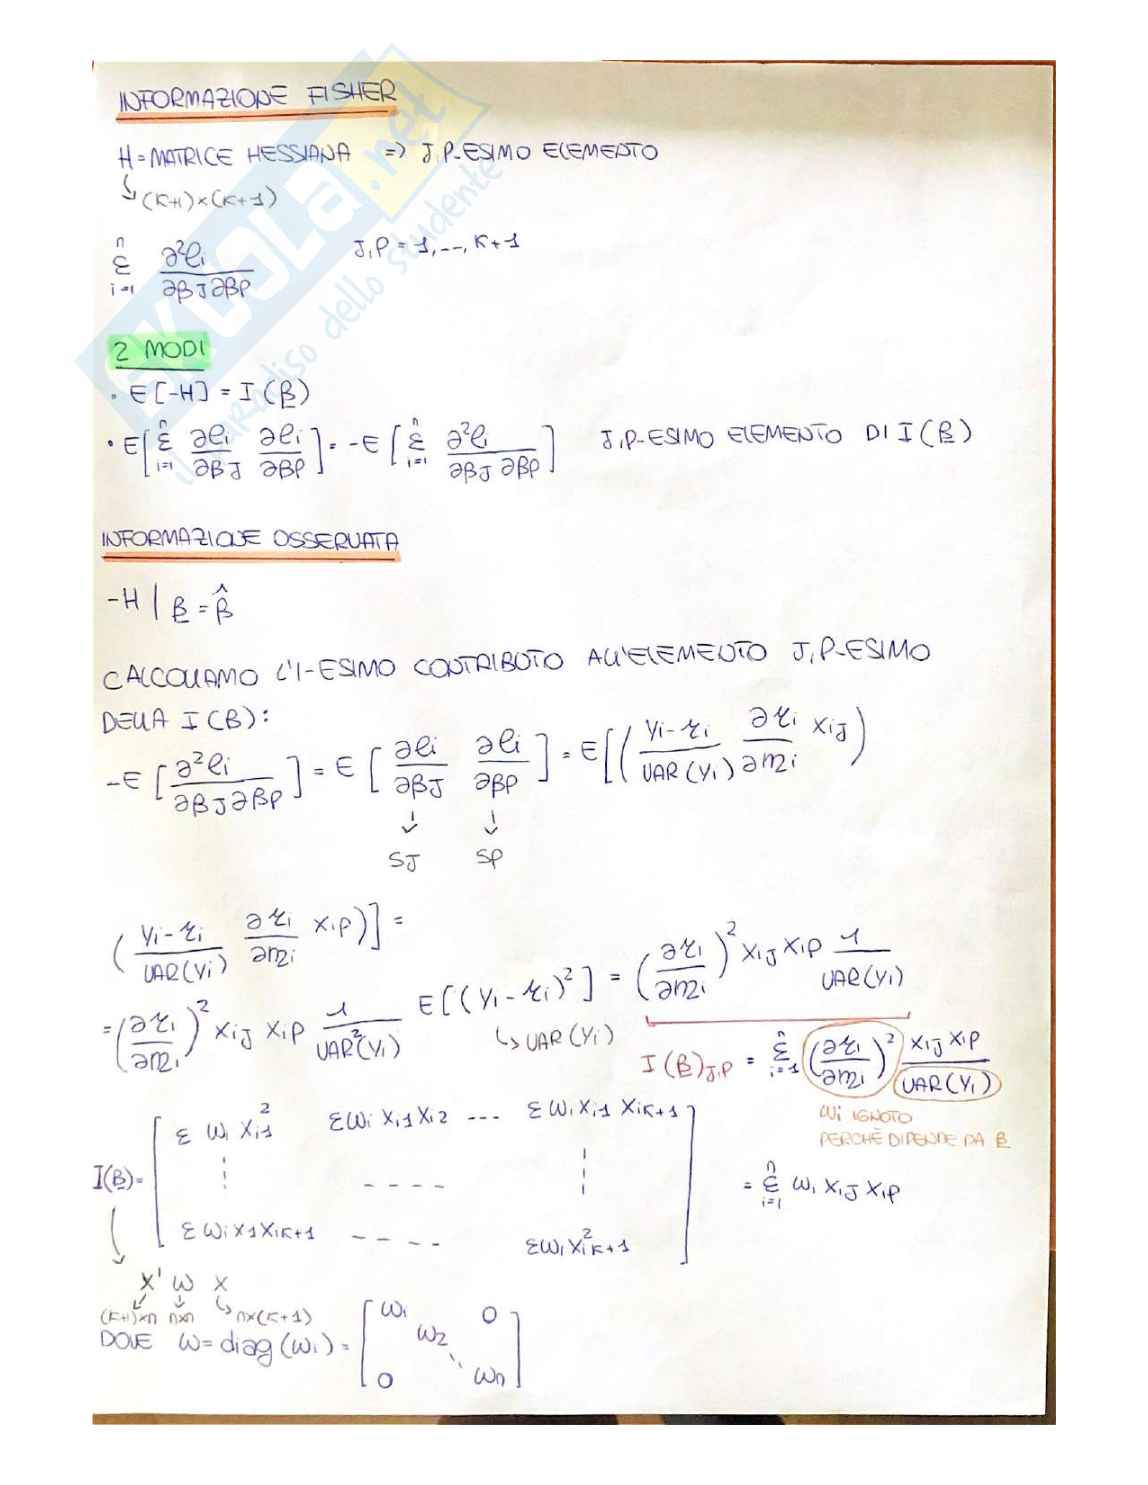 INFORMAZIONE FISHER
H = MATRICE HESSIANA => J,P-ESIMO ELEMENTO
↳ (K+1)×(K+1)
n Σ i=1 ∂²ℓi / ∂βJ ∂βP J,P = 1,--,K+1
2 MODI
• E[-H] = I(β)
• E[ n Σ i=1 ∂ℓi/∂βJ ∂ℓi/∂βP ] = -E[ n Σ i=1 ∂²ℓi / ∂βJ ∂βP ] J,P-ESIMO ELEMENTO DI I(β)
INFORMAZIONE OSSERVATA
-H | β = β̂
CALCOLIAMO L'I-ESIMO CONTRIBUTO ALL'ELEMENTO J,P-ESIMO
DELLA I(β):
-E[ ∂²ℓi / ∂βJ ∂βP ] = E[ ∂ℓi/∂βJ ∂ℓi/∂βP ] = E[( yi-μi / VAR(yi) ∂μi/∂ηi xiJ )
↓ ↓
SJ SP
( yi-μi / VAR(yi) ∂μi/∂ηi xiP )] =
= (∂μi/∂ηi)² xiJ xiP 1/VAR²(yi) E[(yi-μi)²] = (∂μi/∂ηi)² xiJ xiP 1/VAR(yi)
↳ VAR(yi)
I(β)J,P = n Σ i=1 (∂μi/∂ηi)² xiJ xiP / VAR(yi)
Wi IGNOTO
PERCHÈ DIPENDE DA β
= n Σ i=1 wi xiJ xiP
I(β) = [ Σ wi xi1² Σ wi xi1 xi2 --- Σ wi xi1 xiK+1
Σ wi x1 xiK+1 ---- Σ wi xi²K+1 ]
X' W X
(K+1)×n n×n n×(K+1)
DOVE W = diag(wi) = [ w1 0
w2
0 wn ]
SKUOLA.net
il paradiso dello studente